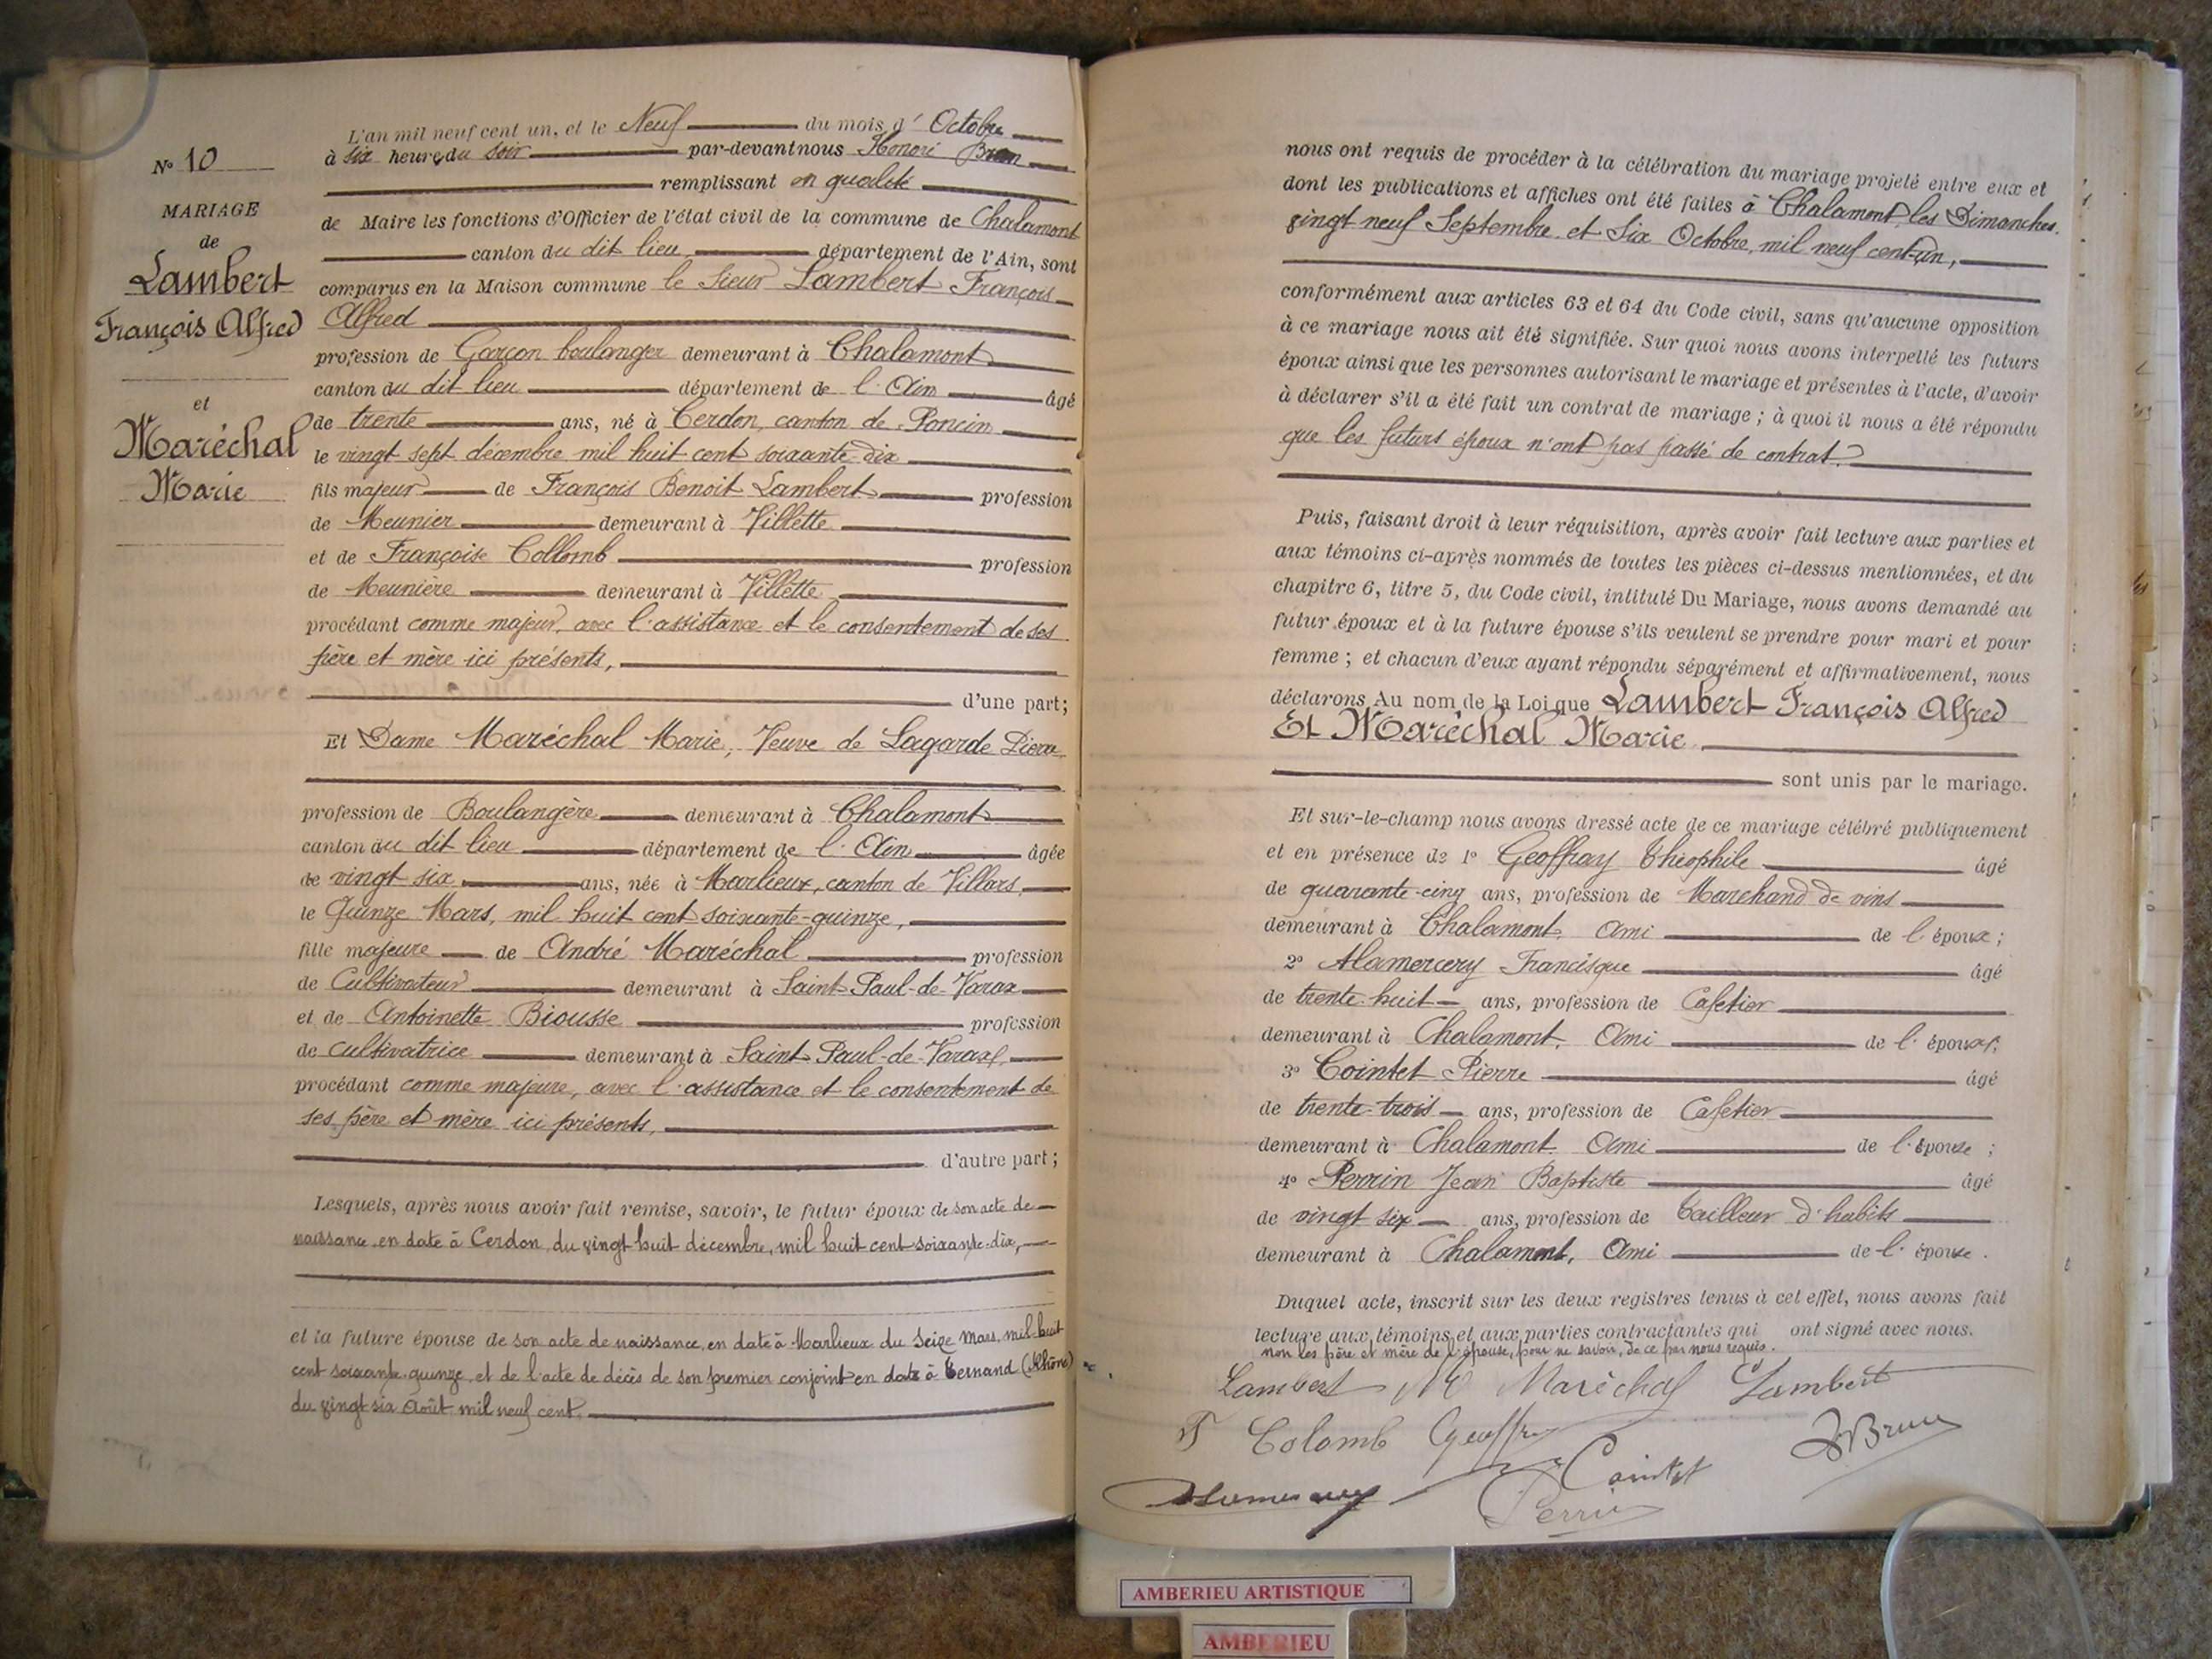 L'an mil neuf cent un, et le Neuf du mois d' Octobre
N° 10
à six heures du soir par-devant nous Honoré Brun
remplissant en qualité
MARIAGE
de Maire les fonctions d'Officier de l'état civil de la commune de Chalamont
de
canton du dit lieu département de l'Ain, sont
Lambert
comparus en la Maison commune le Sieur Lambert François
François Alfred
Alfred
profession de Garçon boulanger demeurant à Chalamont
canton du dit lieu département de l'Ain âgé
et
de trente ans, né à Cerdon, canton de Poncin
Maréchal
le vingt sept décembre mil huit cent soixante-dix
Marie
fils majeur de François Benoit Lambert profession
de Meunier demeurant à Villette
et de Françoise Collomb profession
de Meunière demeurant à Villette
procédant comme majeur, avec l'assistance et le consentement de ses
père et mère ici présents,
d'une part;
Et Dame Maréchal Marie, Veuve de Lagarde Pierre
profession de Boulangère demeurant à Chalamont
canton du dit lieu département de l'Ain âgée
de vingt six ans, née à Marlieux, canton de Villars,
le Quinze Mars, mil huit cent soixante-quinze,
fille majeure de André Maréchal profession
de Cultivateur demeurant à Saint-Paul-de-Varax
et de Antoinette Biousse profession
de cultivatrice demeurant à Saint-Paul-de-Varax,
procédant comme majeure, avec l'assistance et le consentement de
ses père et mère ici présents,
d'autre part;
Lesquels, après nous avoir fait remise, savoir, le futur époux de son acte de
naissance en date à Cerdon, du vingt huit décembre, mil huit cent soixante-dix,
et la future épouse de son acte de naissance en date à Marlieux du Seize Mars, mil-huit
cent soixante-quinze, et de l'acte de décès de son premier conjoint en date à Ternand (Rhône)
du vingt six Août mil neuf cent.
nous ont requis de procéder à la célébration du mariage projeté entre eux et
dont les publications et affiches ont été faites à Chalamont, les Dimanches
vingt neuf Septembre et Six Octobre, mil neuf cent-un,
conformément aux articles 63 et 64 du Code civil, sans qu'aucune opposition
à ce mariage nous ait été signifiée. Sur quoi nous avons interpellé les futurs
époux ainsi que les personnes autorisant le mariage et présentes à l'acte, d'avoir
à déclarer s'il a été fait un contrat de mariage; à quoi il nous a été répondu
que les futurs époux n'ont pas passé de contrat.
Puis, faisant droit à leur réquisition, après avoir fait lecture aux parties et
aux témoins ci-après nommés de toutes les pièces ci-dessus mentionnées, et du
chapitre 6, titre 5, du Code civil, intitulé Du Mariage, nous avons demandé au
futur époux et à la future épouse s'ils veulent se prendre pour mari et pour
femme; et chacun d'eux ayant répondu séparément et affirmativement, nous
déclarons Au nom de la Loi que Lambert François Alfred
Et Maréchal Marie
sont unis par le mariage.
Et sur-le-champ nous avons dressé acte de ce mariage célébré publiquement
et en présence de 1° Geoffray Théophile âgé
de quarante-cinq ans, profession de Marchand de vins
demeurant à Chalamont, ami de l'époux;
2° Alamercery Francisque âgé
de trente-huit ans, profession de Cafetier
demeurant à Chalamont, Ami de l'époux;
3° Cointet Pierre âgé
de trente-trois ans, profession de Cafetier
demeurant à Chalamont Ami de l'épouse;
4° Perrin Jean Baptiste âgé
de vingt six ans, profession de Tailleur d'habits
demeurant à Chalamont, Ami de l'épouse.
Duquel acte, inscrit sur les deux registres tenus à cet effet, nous avons fait
lecture aux témoins et aux parties contractantes qui ont signé avec nous.
non les père et mère de l'épouse, pour ne savoir, de ce par nous requis.
Lambert M Maréchal Lambert
F Colomb Geoffray H Brun
Cointet
Alamercery Perrin
AMBERIEU ARTISTIQUE
AMBERIEU